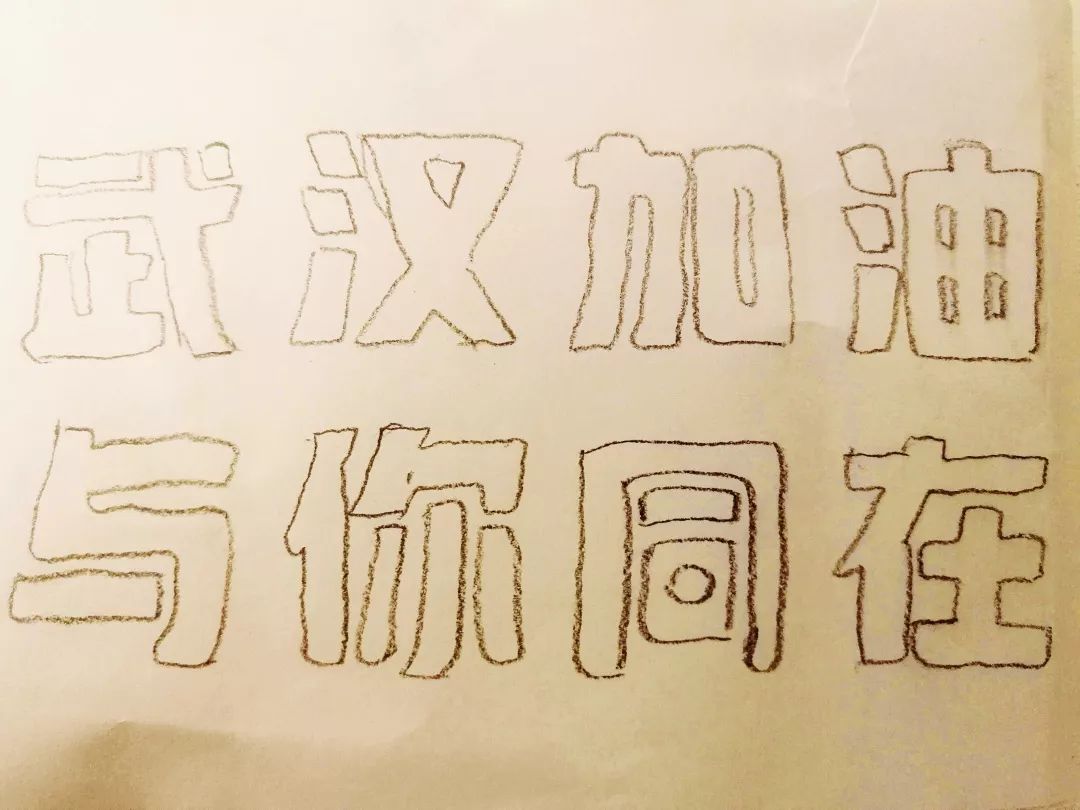 武汉加油
与你同在